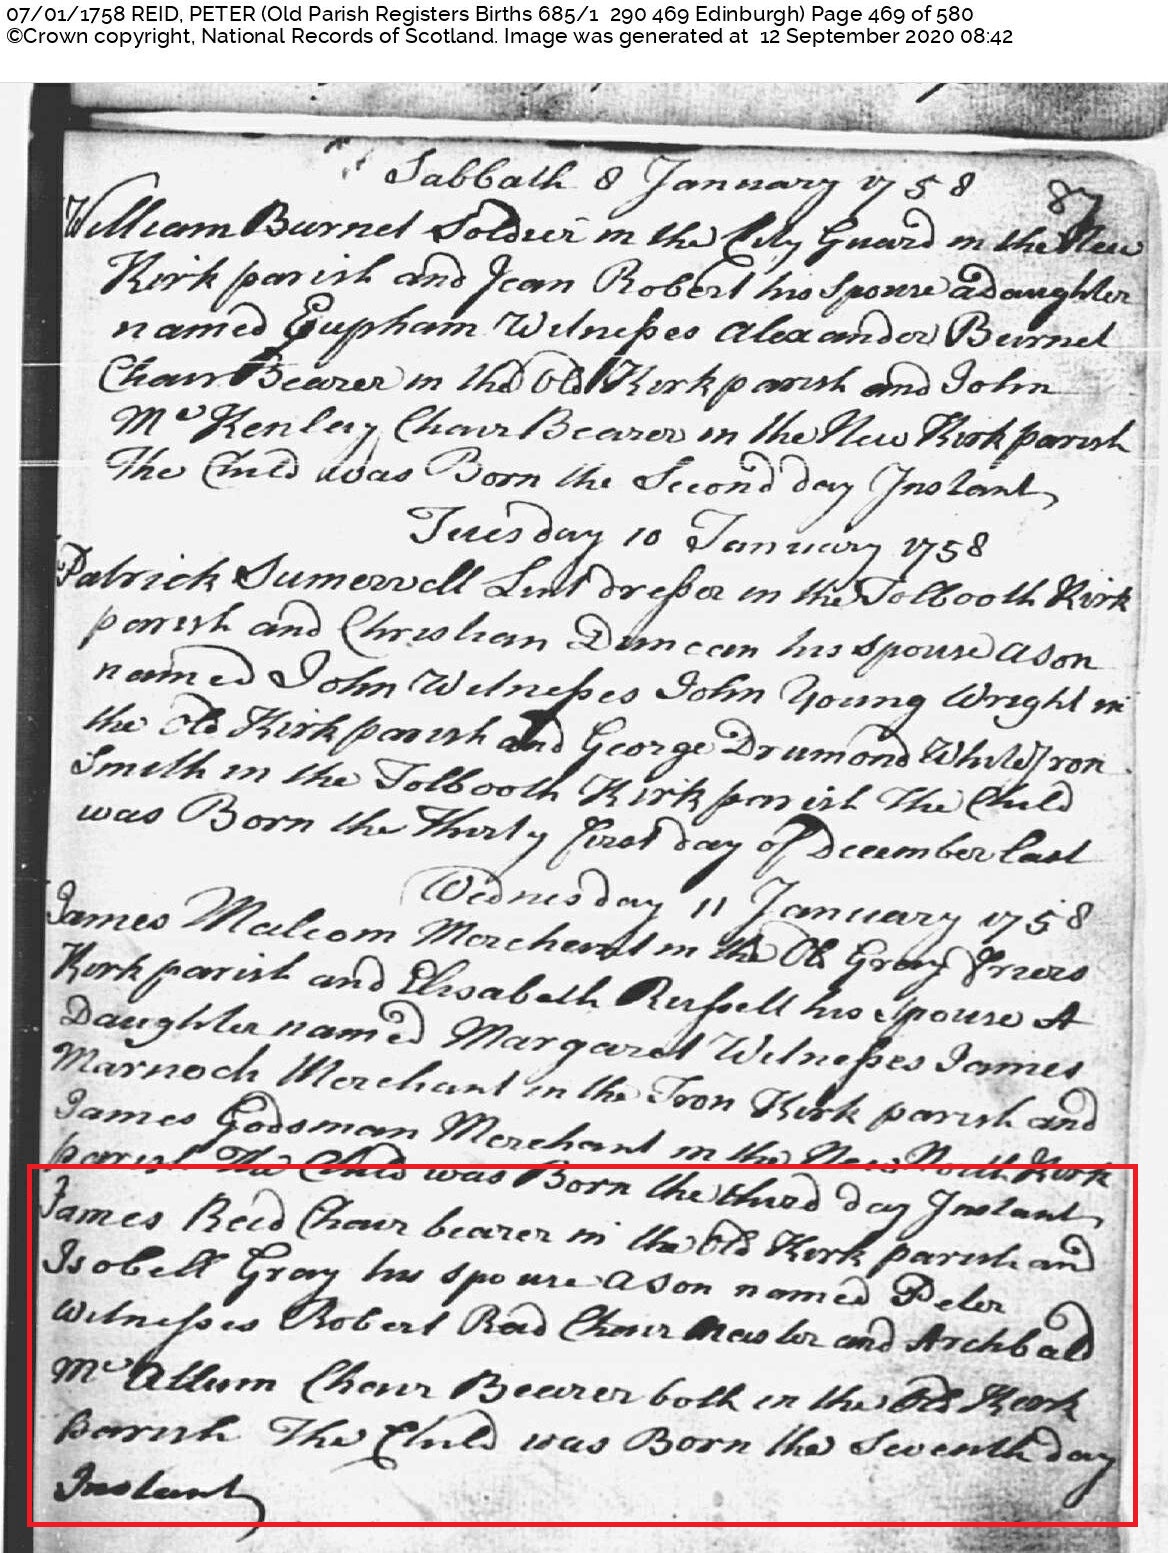 07/01/1758 REID, PETER (Old Parish Registers Births 685/1 290 469 Edinburgh) Page 469 of 580
©Crown copyright, National Records of Scotland. Image was generated at 12 September 2020 08:42
Sabbath 8 January 1758
87
William Burnet Soldier in the City Guard in the New
Kirk parish and Jean Robert his Spouse a Daughter
named Eupham Witnesses Alexander Burnet
Chair Bearer in the Old Kirk parish and John
McKenley Chair Bearer in the New Kirk parish
The Child was Born the Second day Instant
Tuesday 10 January 1758
Patrick Sumervell Lint dresser in the Tolbooth Kirk
parish and Christian Duncan his spouse a son
named John Witnesses John Young Wright in
the Old Kirk parish and George Drumond White Iron
Smith in the Tolbooth Kirk parish The Child
was Born the Thirty first day of December last
Wednesday 11 January 1758
James Malcom Merchant in the Old Gray Friers
Kirk parish and Elisabeth Russell his spouse A
Daughter named Margaret Witnesses James
Marnoch Merchant in the Tron Kirk parish and
James Godsman Merchant in the New North Kirk
parish The Child was Born the third day Instant
James Reid Chair bearer in the Old Kirk parish and
Isobell Gray his spouse a son named Peter
Witnesses Robert Reid Chair Master and Archbald
McAllum Chair Bearer both in the Old Kirk
Parish The Child was Born the Seventh day
Instant